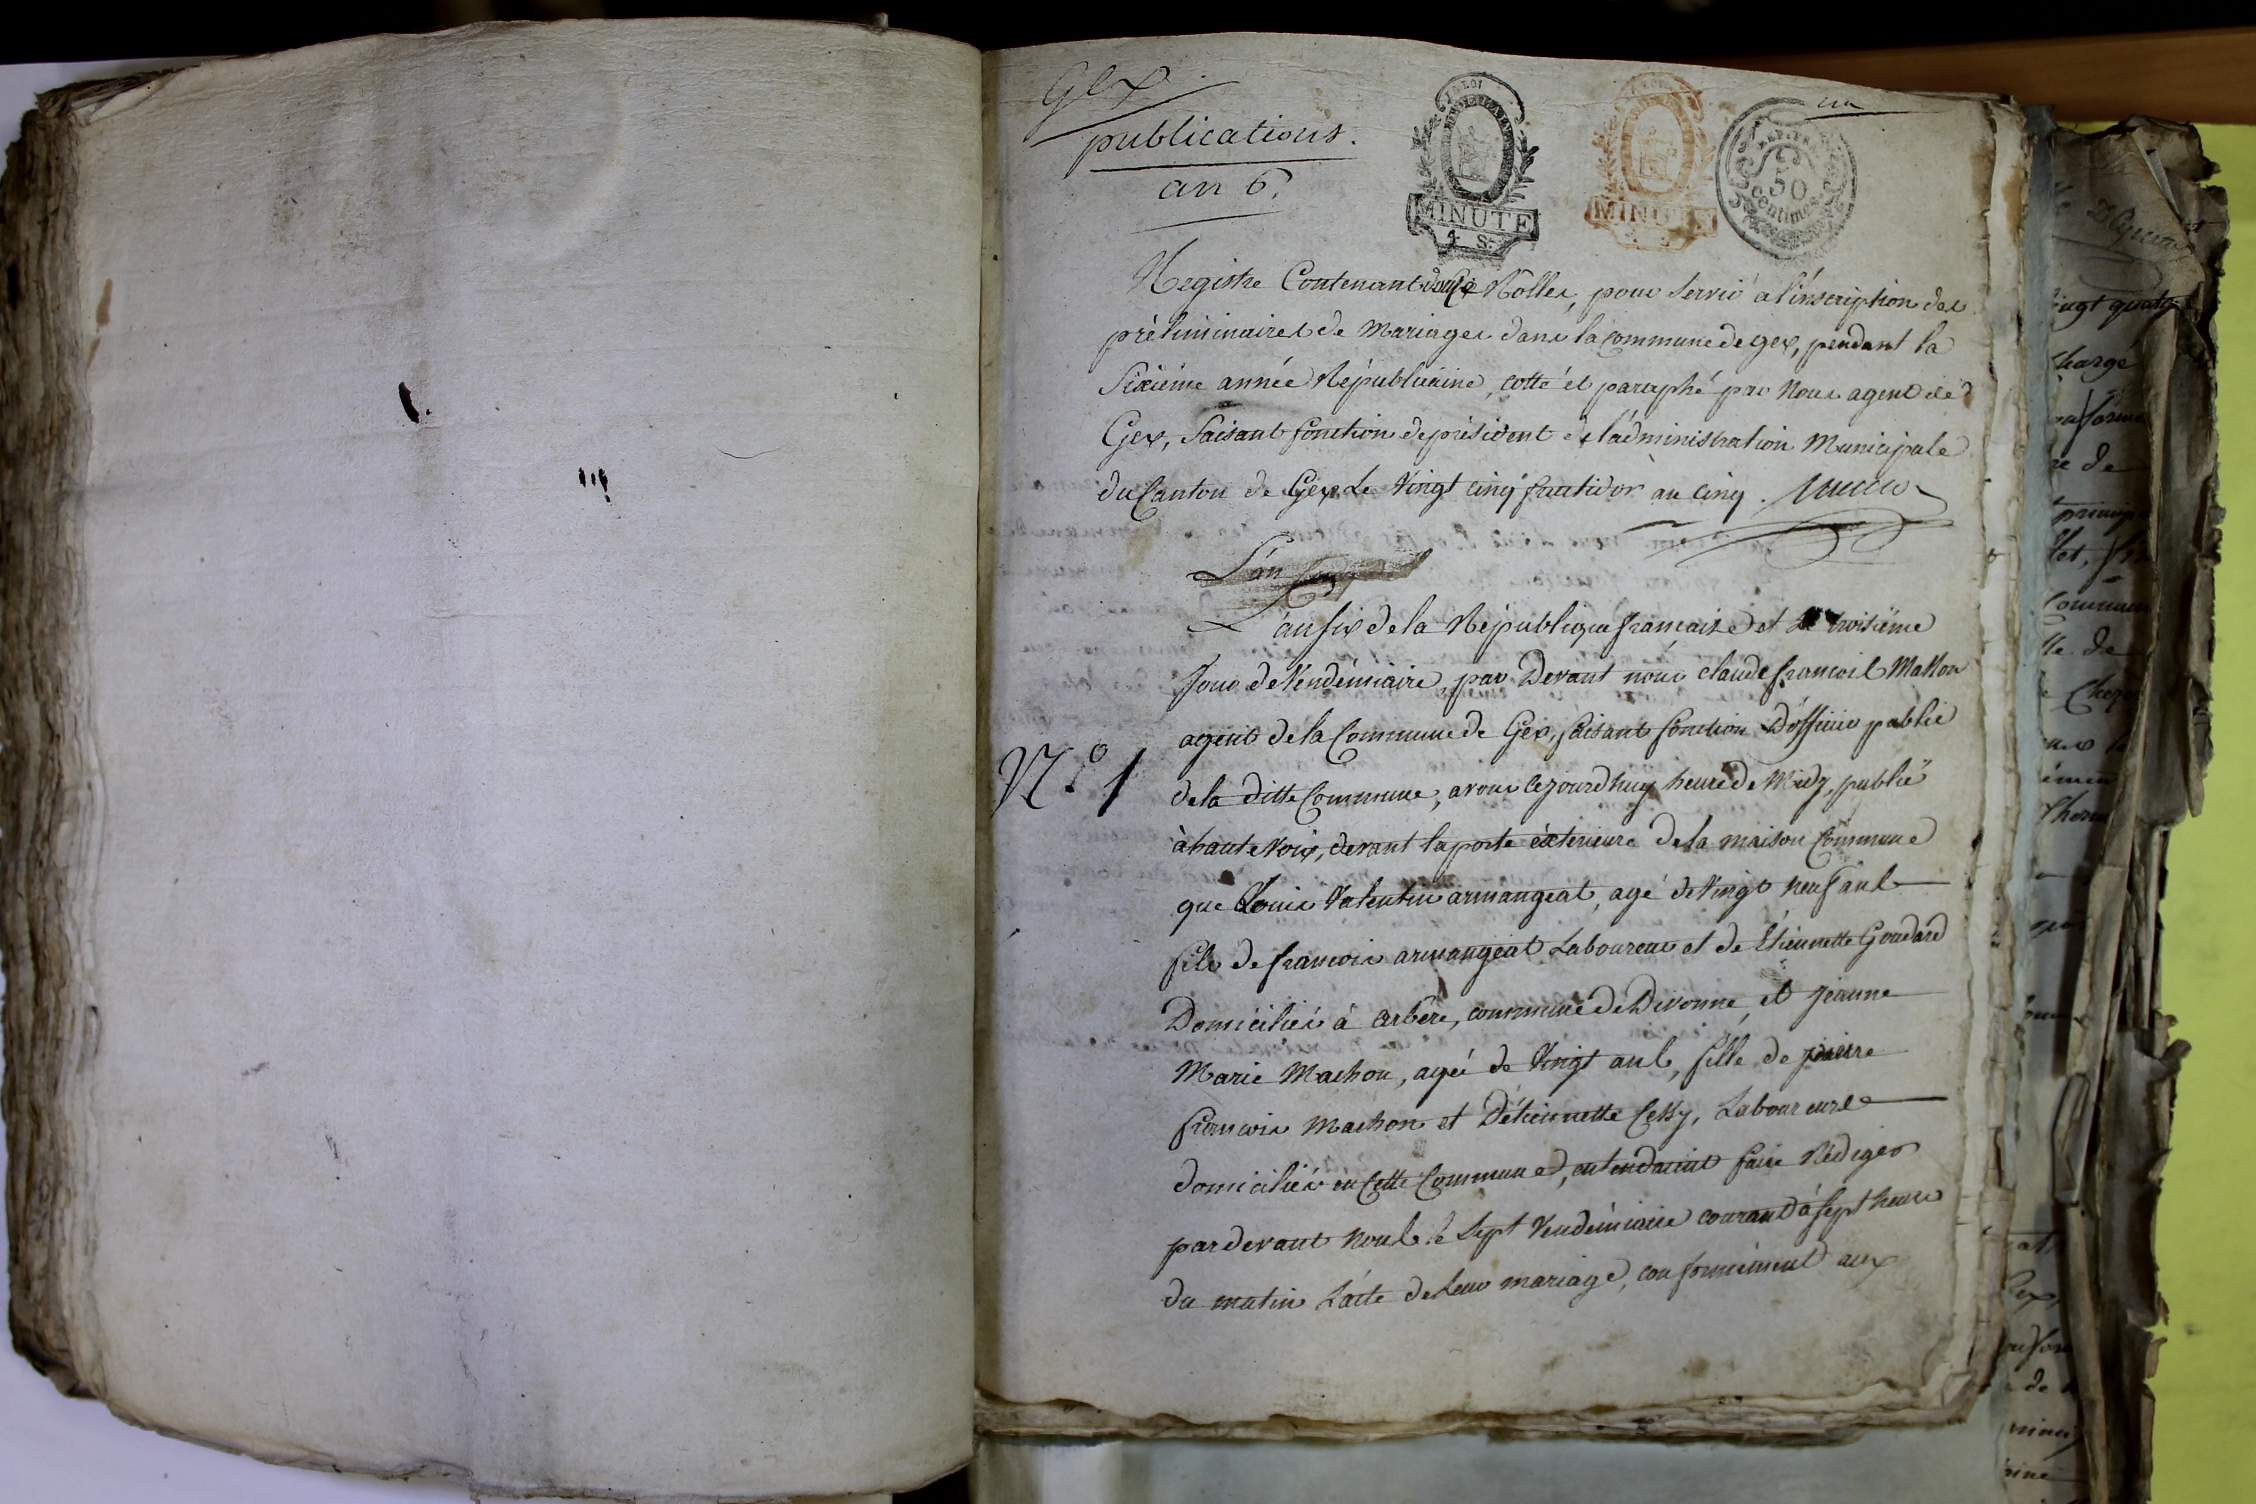 Gex
publications.
an 6.
LA LOI
MINUTE
4 S.
MINUTE
50
Centimes
un
Registre Contenant douze Rolles, pour servir a l'inscription des
préliminaires de Mariages dans la commune de gex, pendant la
Sixième année Républicaine, cotté et paraphé par Nous agent de
Gex, faisant fonction de président de l'administration Municipale
du Canton de Gex Le Vingt cinq fructidor an cinq.
L'an
L'an six de la République française et le troisième
Jour de Vendémiaire, par Devant nous claude françois Mathon
agent de la Commune de Gex, faisant fonction D'officier public
de la ditte Commune, avons cejourdhuy heure de Midy, publié
à haute Voix, devant la porte éxterieure de la maison Commune
que Louis Valentin armangeat, agé de Vingt neuf ans
fils de françois armangeat Laboureur et de Etiennette Goudard
Domiciliés à arbere, commune de Divonne, et jeanne
Marie Machon, agée de Vingt ans, fille de pierre
françois Machon et D'étiennette Cessy, Laboureurs
domiciliés en Cette Commune, entendaient faire Rédiger
pardevant Nous le Sept Vendémiaire courant à sept heure
du matin L'acte de Leur mariage, conformément aux
N.o 1
vingt quatre
chargé
de
Commun
de